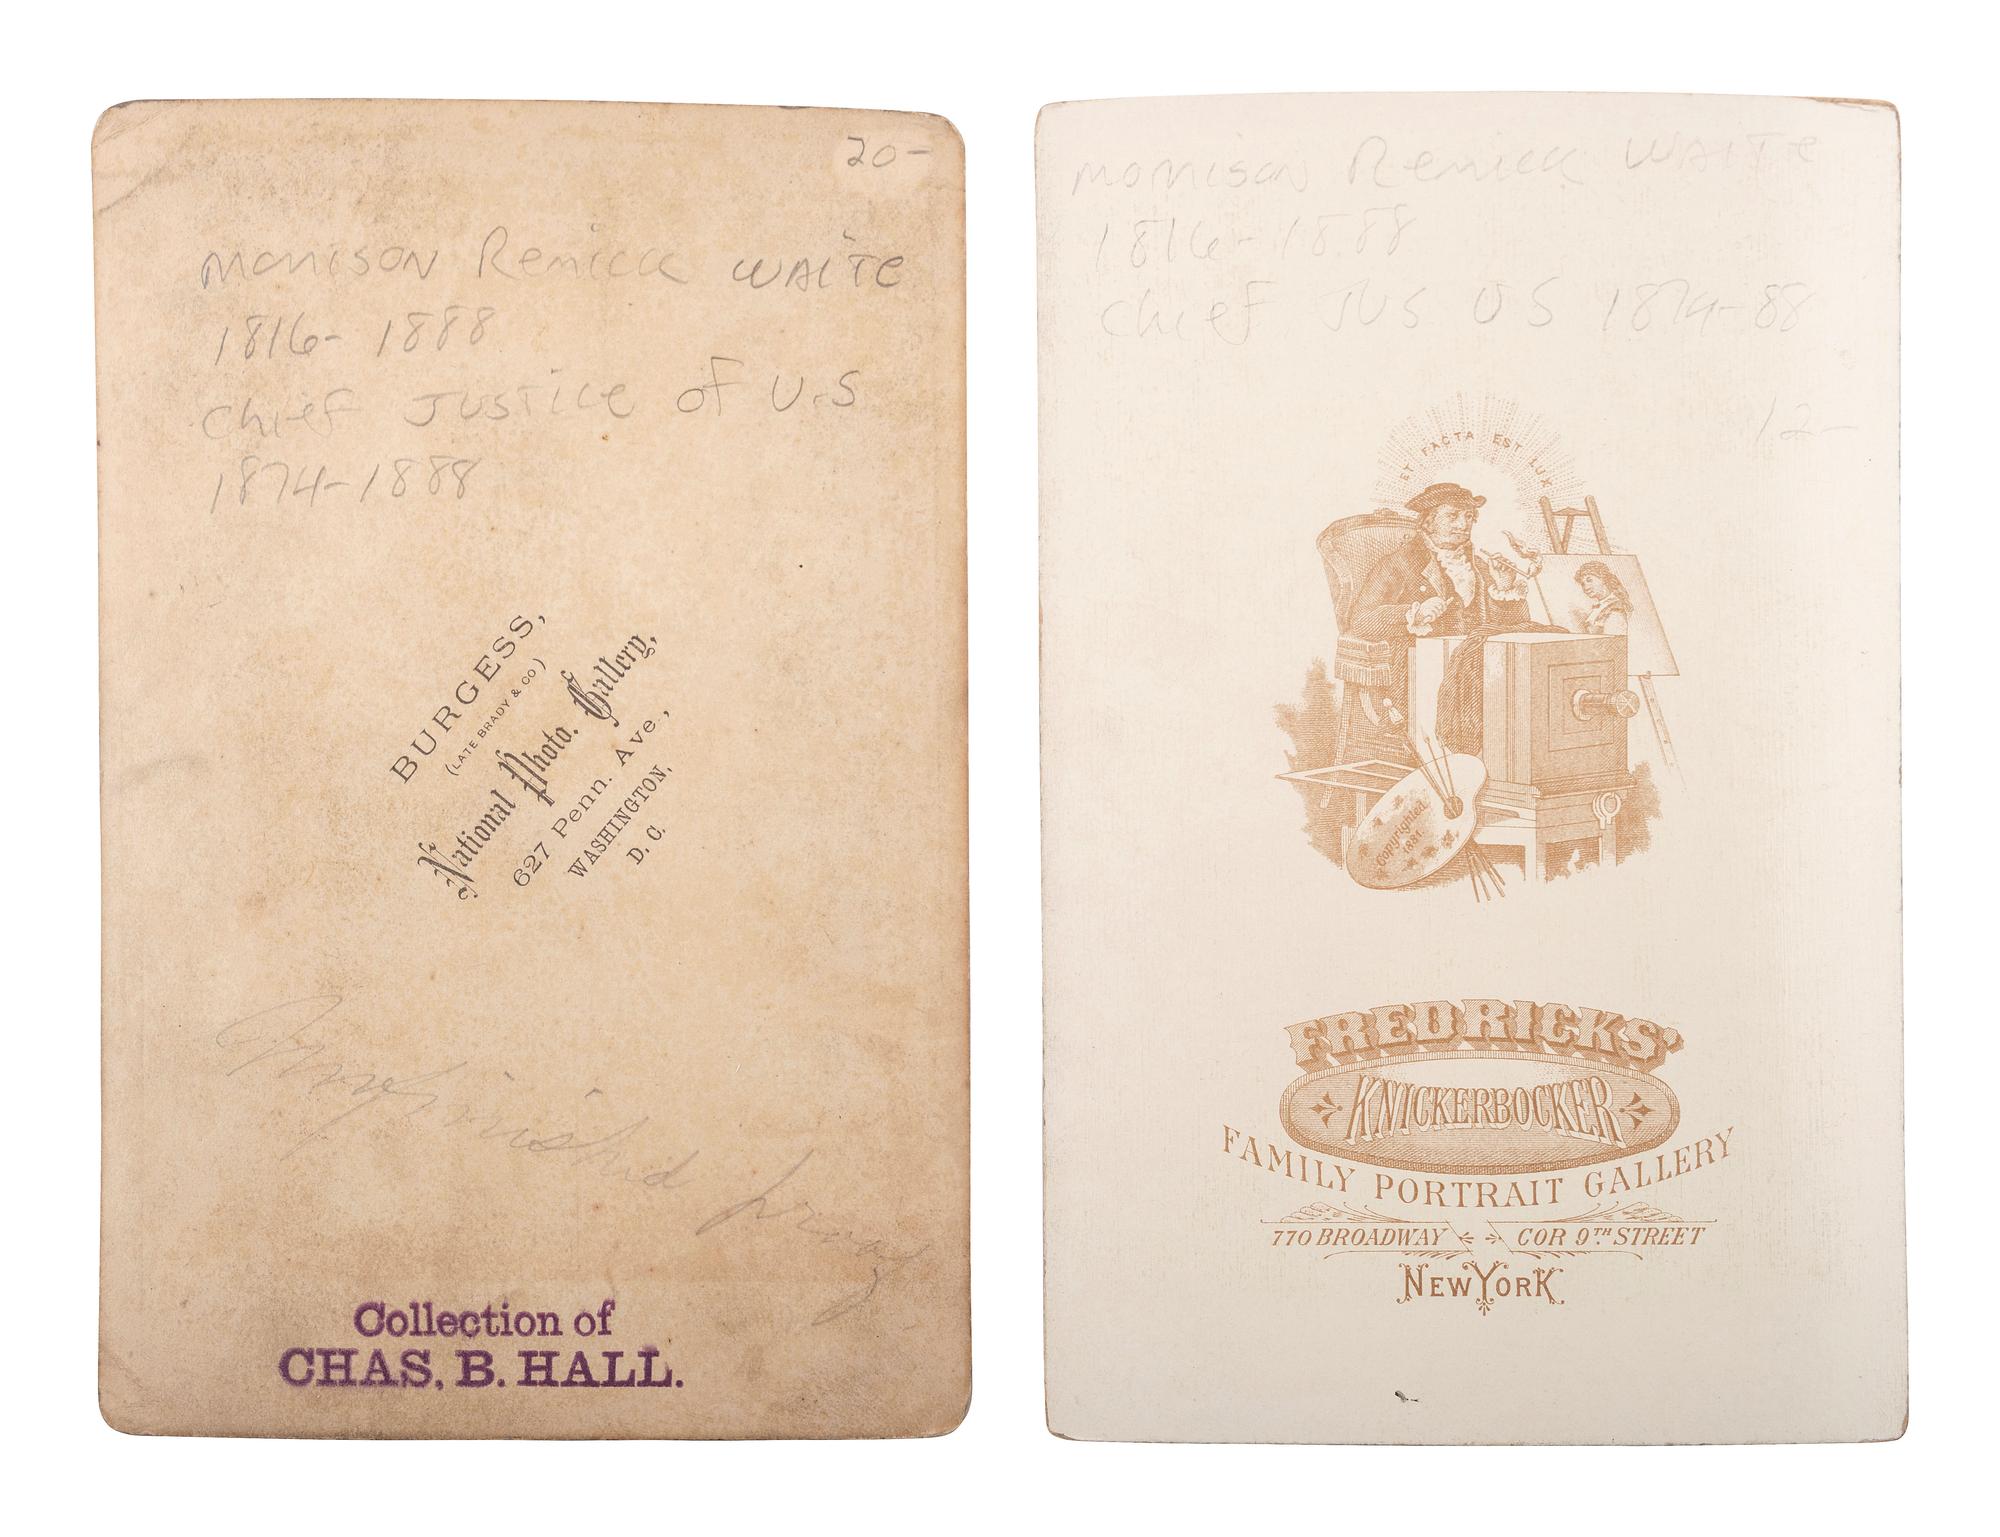 20-
Morrison Remick WAITE
1816-1888
Chief JUSTICE of U.S
1874-1888
BURGESS,
(LATE BRADY & CO)
National Photo. Gallery,
627 Penn. Ave,
WASHINGTON,
D. C.
Unfinished proof
Collection of
CHAS. B. HALL.
Morrison Remick WAITE
1816-1888
Chief JUS US 1874-88
12-
ET FACTA EST LUX
Copyrighted
1881.
FREDRICKS'
KNICKERBOCKER
FAMILY PORTRAIT GALLERY
770 BROADWAY COR 9TH STREET
NEW YORK